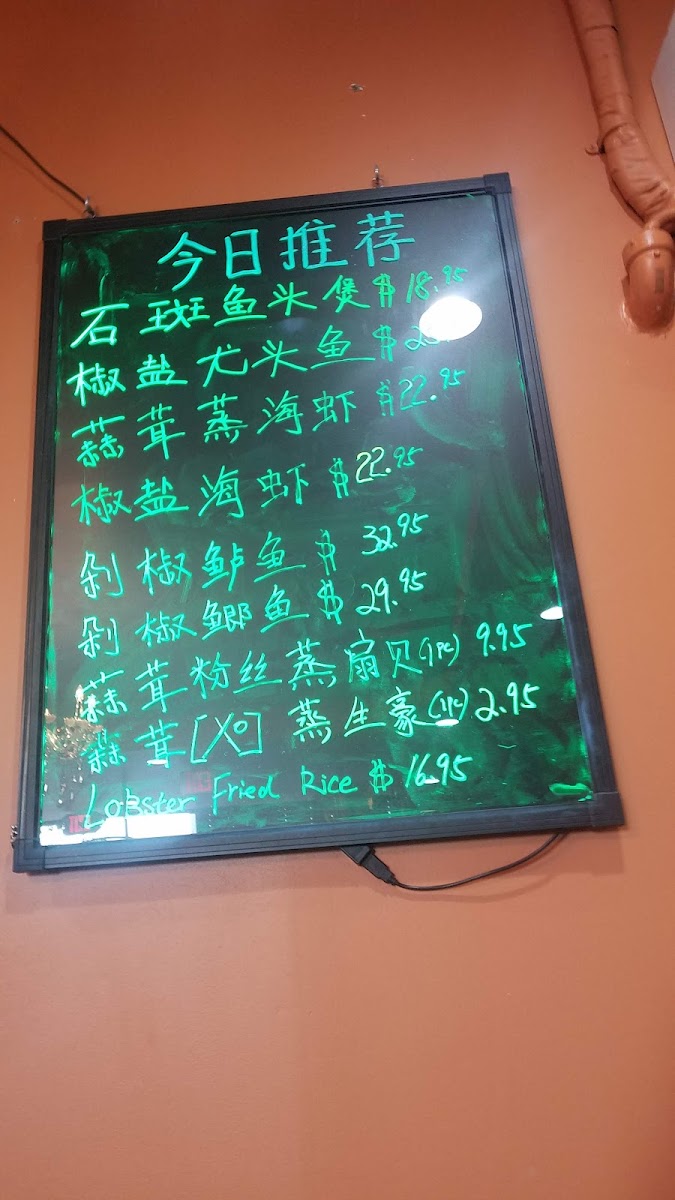 今日推荐
石斑鱼头煲 $18.95
椒盐尤头鱼 $
蒜茸蒸海虾 $22.95
椒盐海虾 $22.95
剁椒鲈鱼 $ 32.95
剁椒鲫鱼 $29.95
蒜茸粉丝蒸扇贝(1PC) 9.95
蒜茸[XO] 蒸生豪(1PC) 2.95
Lobster Fried Rice $16.95